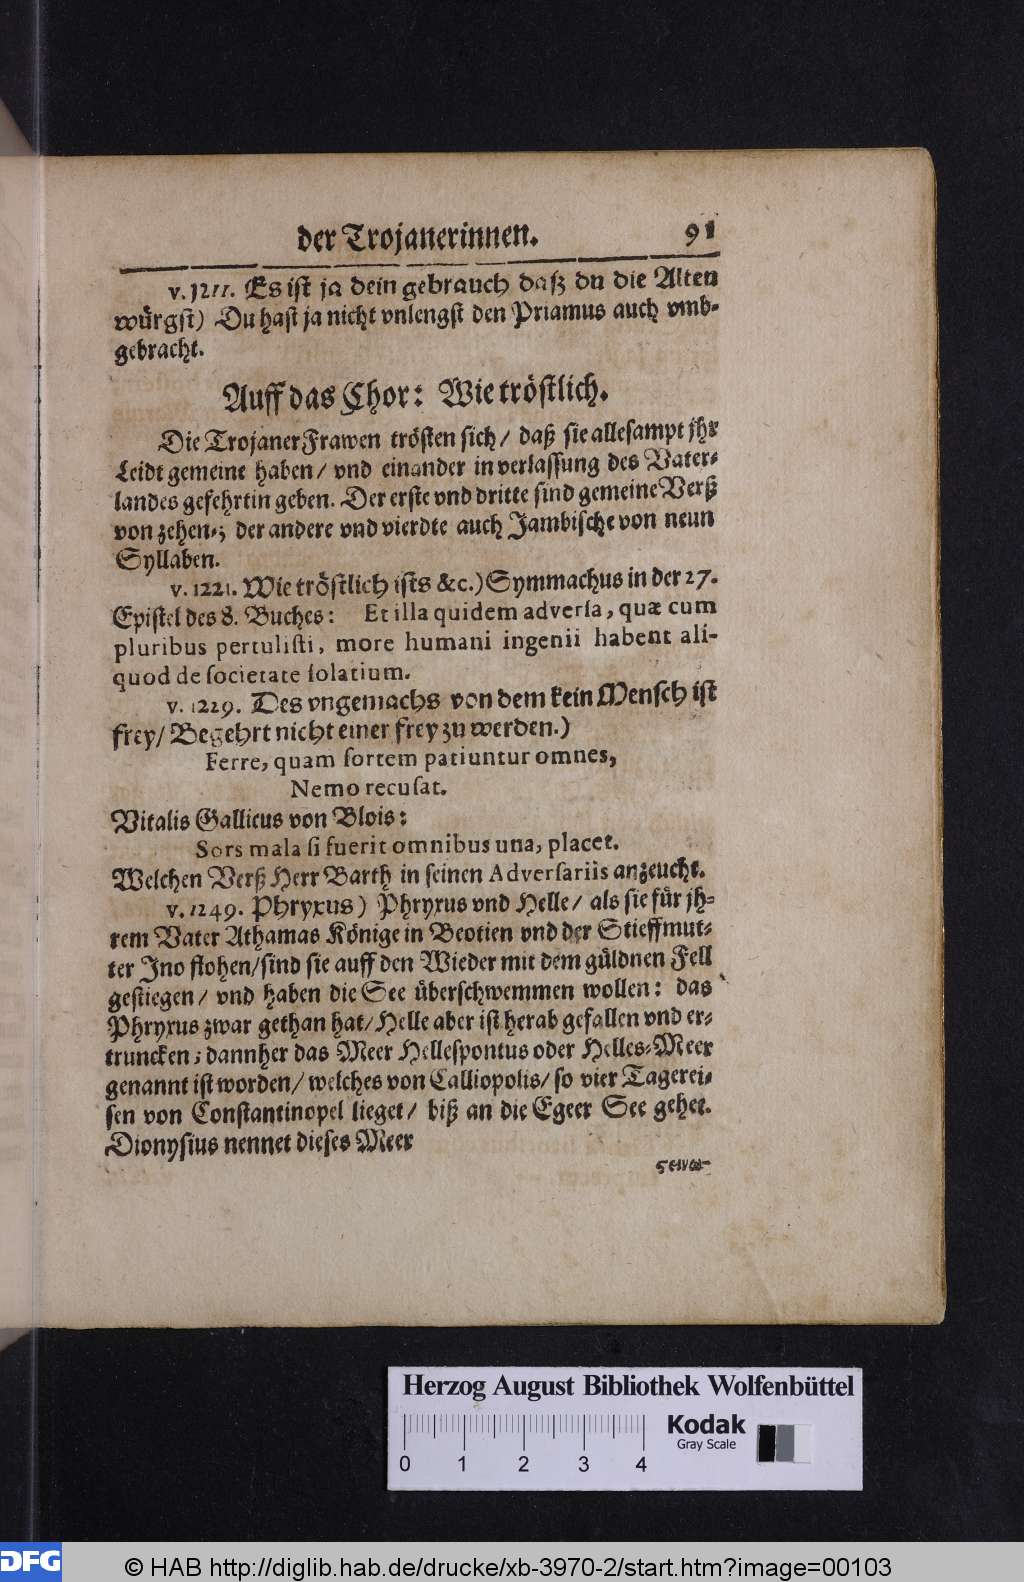 der Trojanerinnen. 91
v. 1211. Es ist ja dein gebrauch daß du die Alten
würgst) Du hast ja nicht vnlengst den Priamus auch vmb-
gebracht.
Auff das Chor: Wie tröstlich.
Die TrojanerFrawen trösten sich/ daß sie allesampt jhr
Leidt gemeine haben/ vnd einander in verlassung des Vater-
landes gefehrtin geben. Der erste vnd dritte sind gemeine Verß
von zehen-; der andere vnd vierdte auch Jambische von neun
Syllaben.
v. 1221. Wie tröstlich ists &c.) Symmachus in der 27.
Epistel des 8. Buches: Et illa quidem adversa, quæ cum
pluribus pertulisti, more humani ingenii habent ali-
quod de societate solatium.
v. 1229. Des vngemachs von dem kein Mensch ist
frey/ Begehrt nicht einer frey zu werden.)
Ferre, quam sortem patiuntur omnes,
Nemo recusat.
Vitalis Gallicus von Blois:
Sors mala si fuerit omnibus una, placet.
Welchen Verß Herr Barth in seinen Adversariis anzeucht.
v. 1249. Phryxus) Phryxus vnd Helle/ als sie für jh-
rem Vater Athamas Könige in Beotien vnd der Stieffmut-
ter Ino flohen/ sind sie auff den Wieder mit dem güldnen Fell
gestiegen/ vnd haben die See überschwemmen wollen: das
Phryxus zwar gethan hat/ Helle aber ist herab gefallen vnd er-
truncken; dannher das Meer Hellespontus oder Helles-Meer
genannt ist worden/ welches von Calliopolis/ so vier Tagerei-
sen von Constantinopel lieget/ biß an die Egeer See gehet.
Dionysius nennet dieses Meer
Herzog August Bibliothek Wolfenbüttel
Kodak
Gray Scale
0 1 2 3 4
DFG © HAB http://diglib.hab.de/drucke/xb-3970-2/start.htm?image=00103